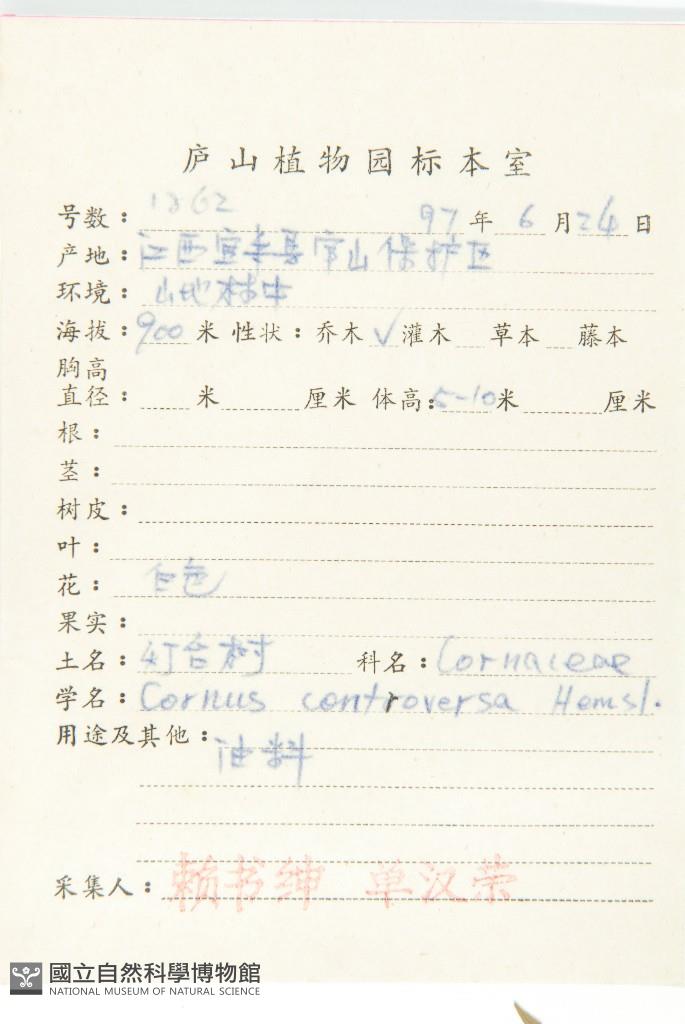 庐山植物园标本室
号数：1862 97年6月24日
产地：江西宜丰县官山保护区
环境：山地林中
海拔：900米 性状：乔木√灌木 草本 藤本
胸高
直径： 米 厘米 体高：5-10米 厘米
根：
茎：
树皮：
叶：
花：白色
果实：
土名：灯台树 科名：Cornaceae
学名：Cornus controversa Hemsl.
用途及其他：油料
采集人：赖书绅 单汉荣
國立自然科學博物館
NATIONAL MUSEUM OF NATURAL SCIENCE